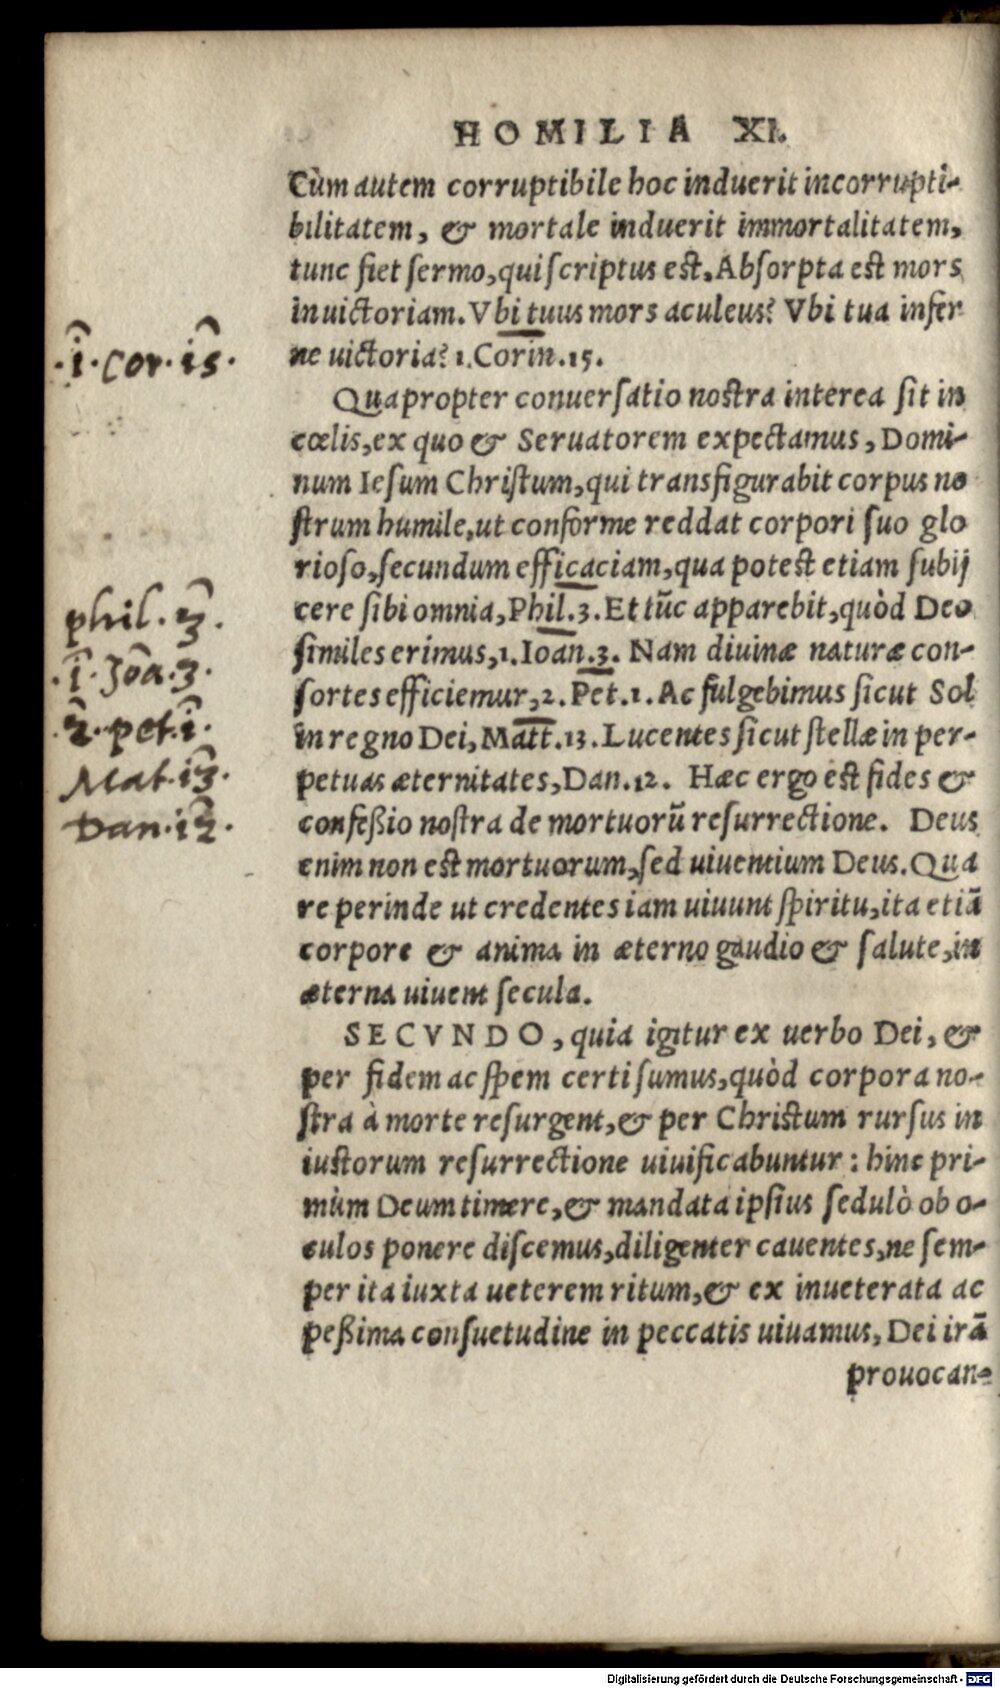 HOMILIA XI.
Cùm autem corruptibile hoc induerit incorrupti-
bilitatem, & mortale induerit immortalitatem,
tunc fiet sermo, qui scriptus est. Absorpta est mors
in uictoriam. Vbi tuus mors aculeus? Vbi tua infer
ne uictoria? 1. Corin. 15.
·1· Cor· 15·
Quapropter conuersatio nostra interea sit in
cœlis, ex quo & Seruatorem expectamus, Domi-
num Iesum Christum, qui transfigurabit corpus no
strum humile, ut conforme reddat corpori suo glo
rioso, secundum efficaciam, qua potest etiam subij
cere sibi omnia, Phil. 3. Et tūc apparebit, quòd Deo
similes erimus, 1. Ioan. 3. Nam diuinæ naturæ con-
sortes efficiemur, 2. Pet. 1. Ac fulgebimus sicut Sol
in regno Dei, Matt. 13. Lucentes sicut stellæ in per-
petuas æternitates, Dan. 12. Hæc ergo est fides &
confeßio nostra de mortuorū resurrectione. Deus
enim non est mortuorum, sed uiuentium Deus. Qua
re perinde ut credentes iam uiuunt spiritu, ita etiā
corpore & anima in æterno gaudio & salute, in
æterna uiuent secula.
phil· 3·
·1· Joā· 3·
·2· pet· 1·
Mat· 13·
Dan· 12·
SECVNDO, quia igitur ex uerbo Dei, &
per fidem ac spem certi sumus, quòd corpora no-
stra à morte resurgent, & per Christum rursus in
iustorum resurrectione uiuificabuntur: hinc pri-
mùm Deum timere, & mandata ipsius sedulò ob o-
culos ponere discemus, diligenter cauentes, ne sem-
per ita iuxta ueterem ritum, & ex inueterata ac
peßima consuetudine in peccatis uiuamus, Dei irā
prouocan-
Digitalisierung gefördert durch die Deutsche Forschungsgemeinschaft - DFG